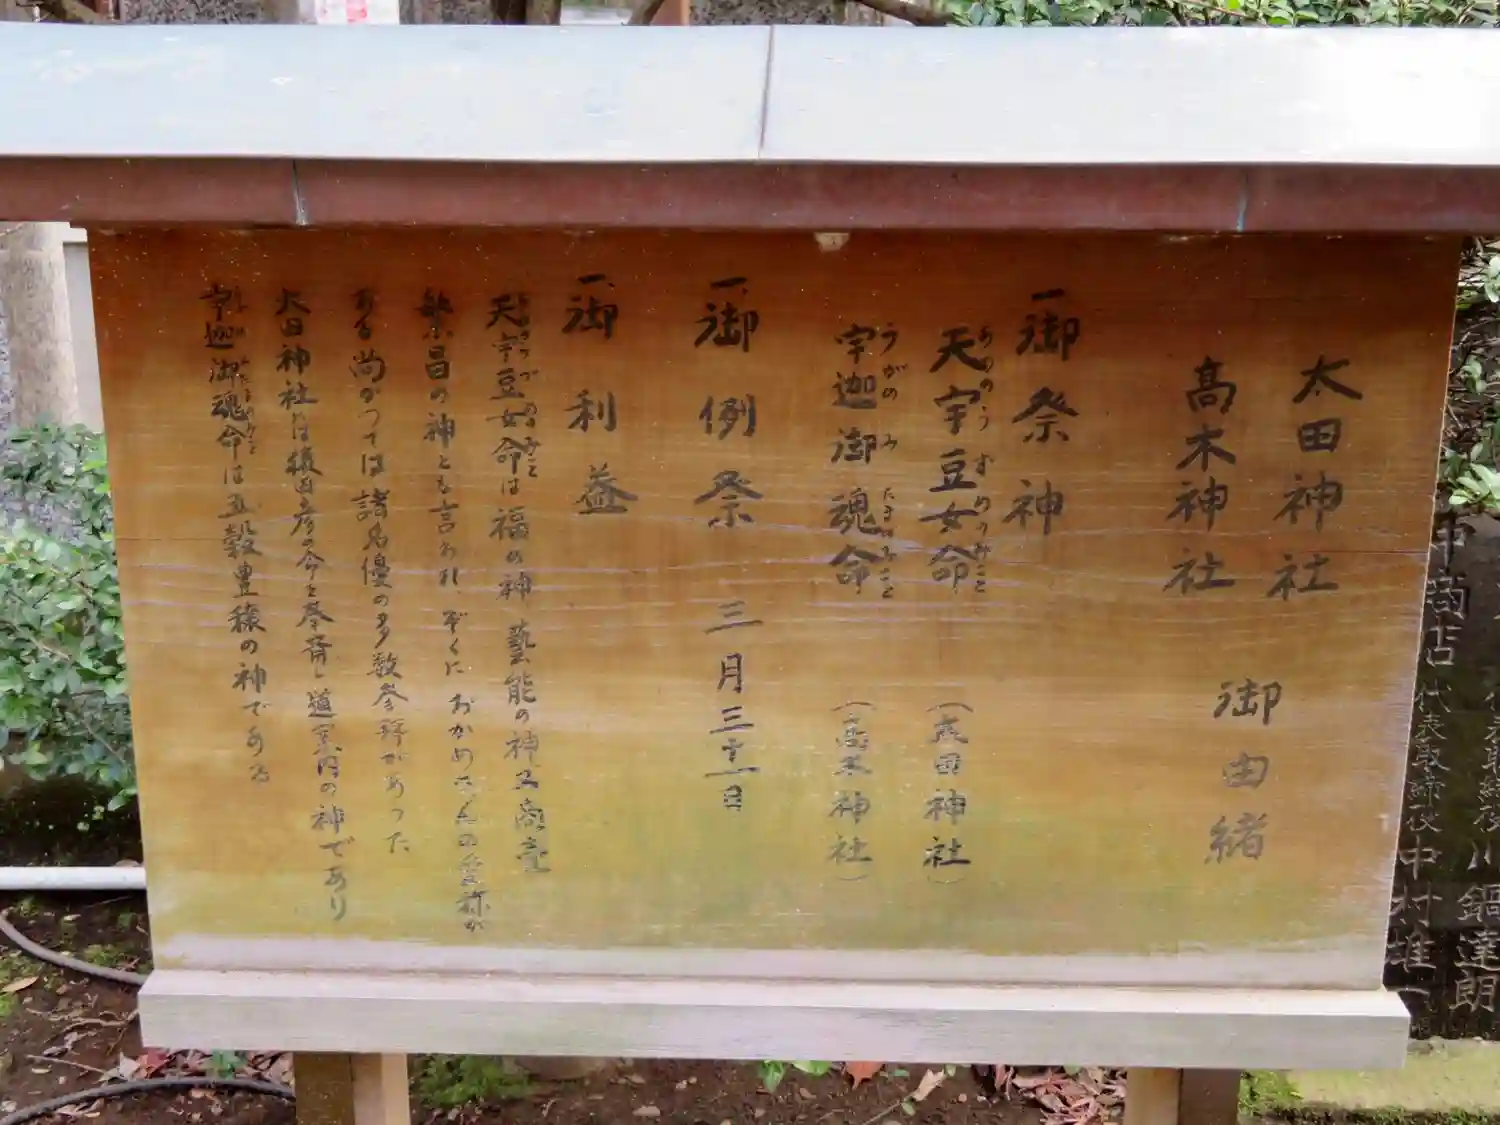 太田神社
高木神社
御由緒
一、御祭神
天宇豆女命（太田神社）
あめのうずめのみこと
宇迦御魂命（高木神社）
うがのみたまのみこと
一、御例祭 三月三十一日
一、御利益
天宇豆女命は福の神 藝能の神 又商売
繁昌の神とも言われ ぞくに おかめさんの愛称が
ある尚かつては諸名優の多数参拝があった
太田神社は猿田彦の命を奉斎し道案内の神であり
宇迦御魂命は五穀豊穣の神である
代表取締役 川鍋達朗
中商店 代表取締役 中村雄一